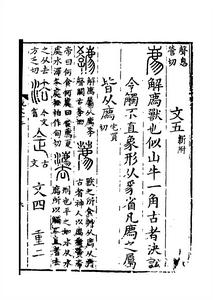 聲息營切
文五 新附
廌 解廌獸也似山牛一角古者決訟
令觸不直象形从豸省凡廌之屬
皆从廌 宅買切
𢊁 解廌屬从廌孝聲闕古孝切 薦 獸之所食艸从廌从艸古者神人以廌遺黃
帝帝曰何食何處曰食薦夏處水澤冬處松柏作甸切 灋 刑也平之如水从水廌所以觸不直者去
之从去方乏切 法 今文省 佱 古文 文四 重二